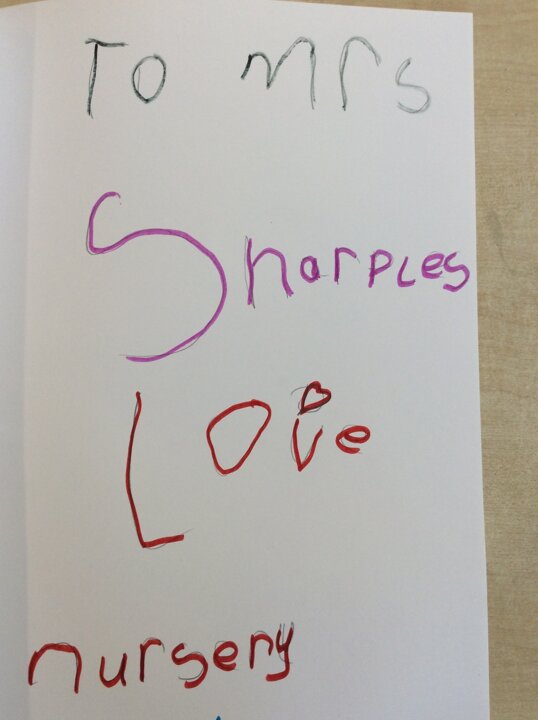 To Mrs
Sharples
Love
nursery